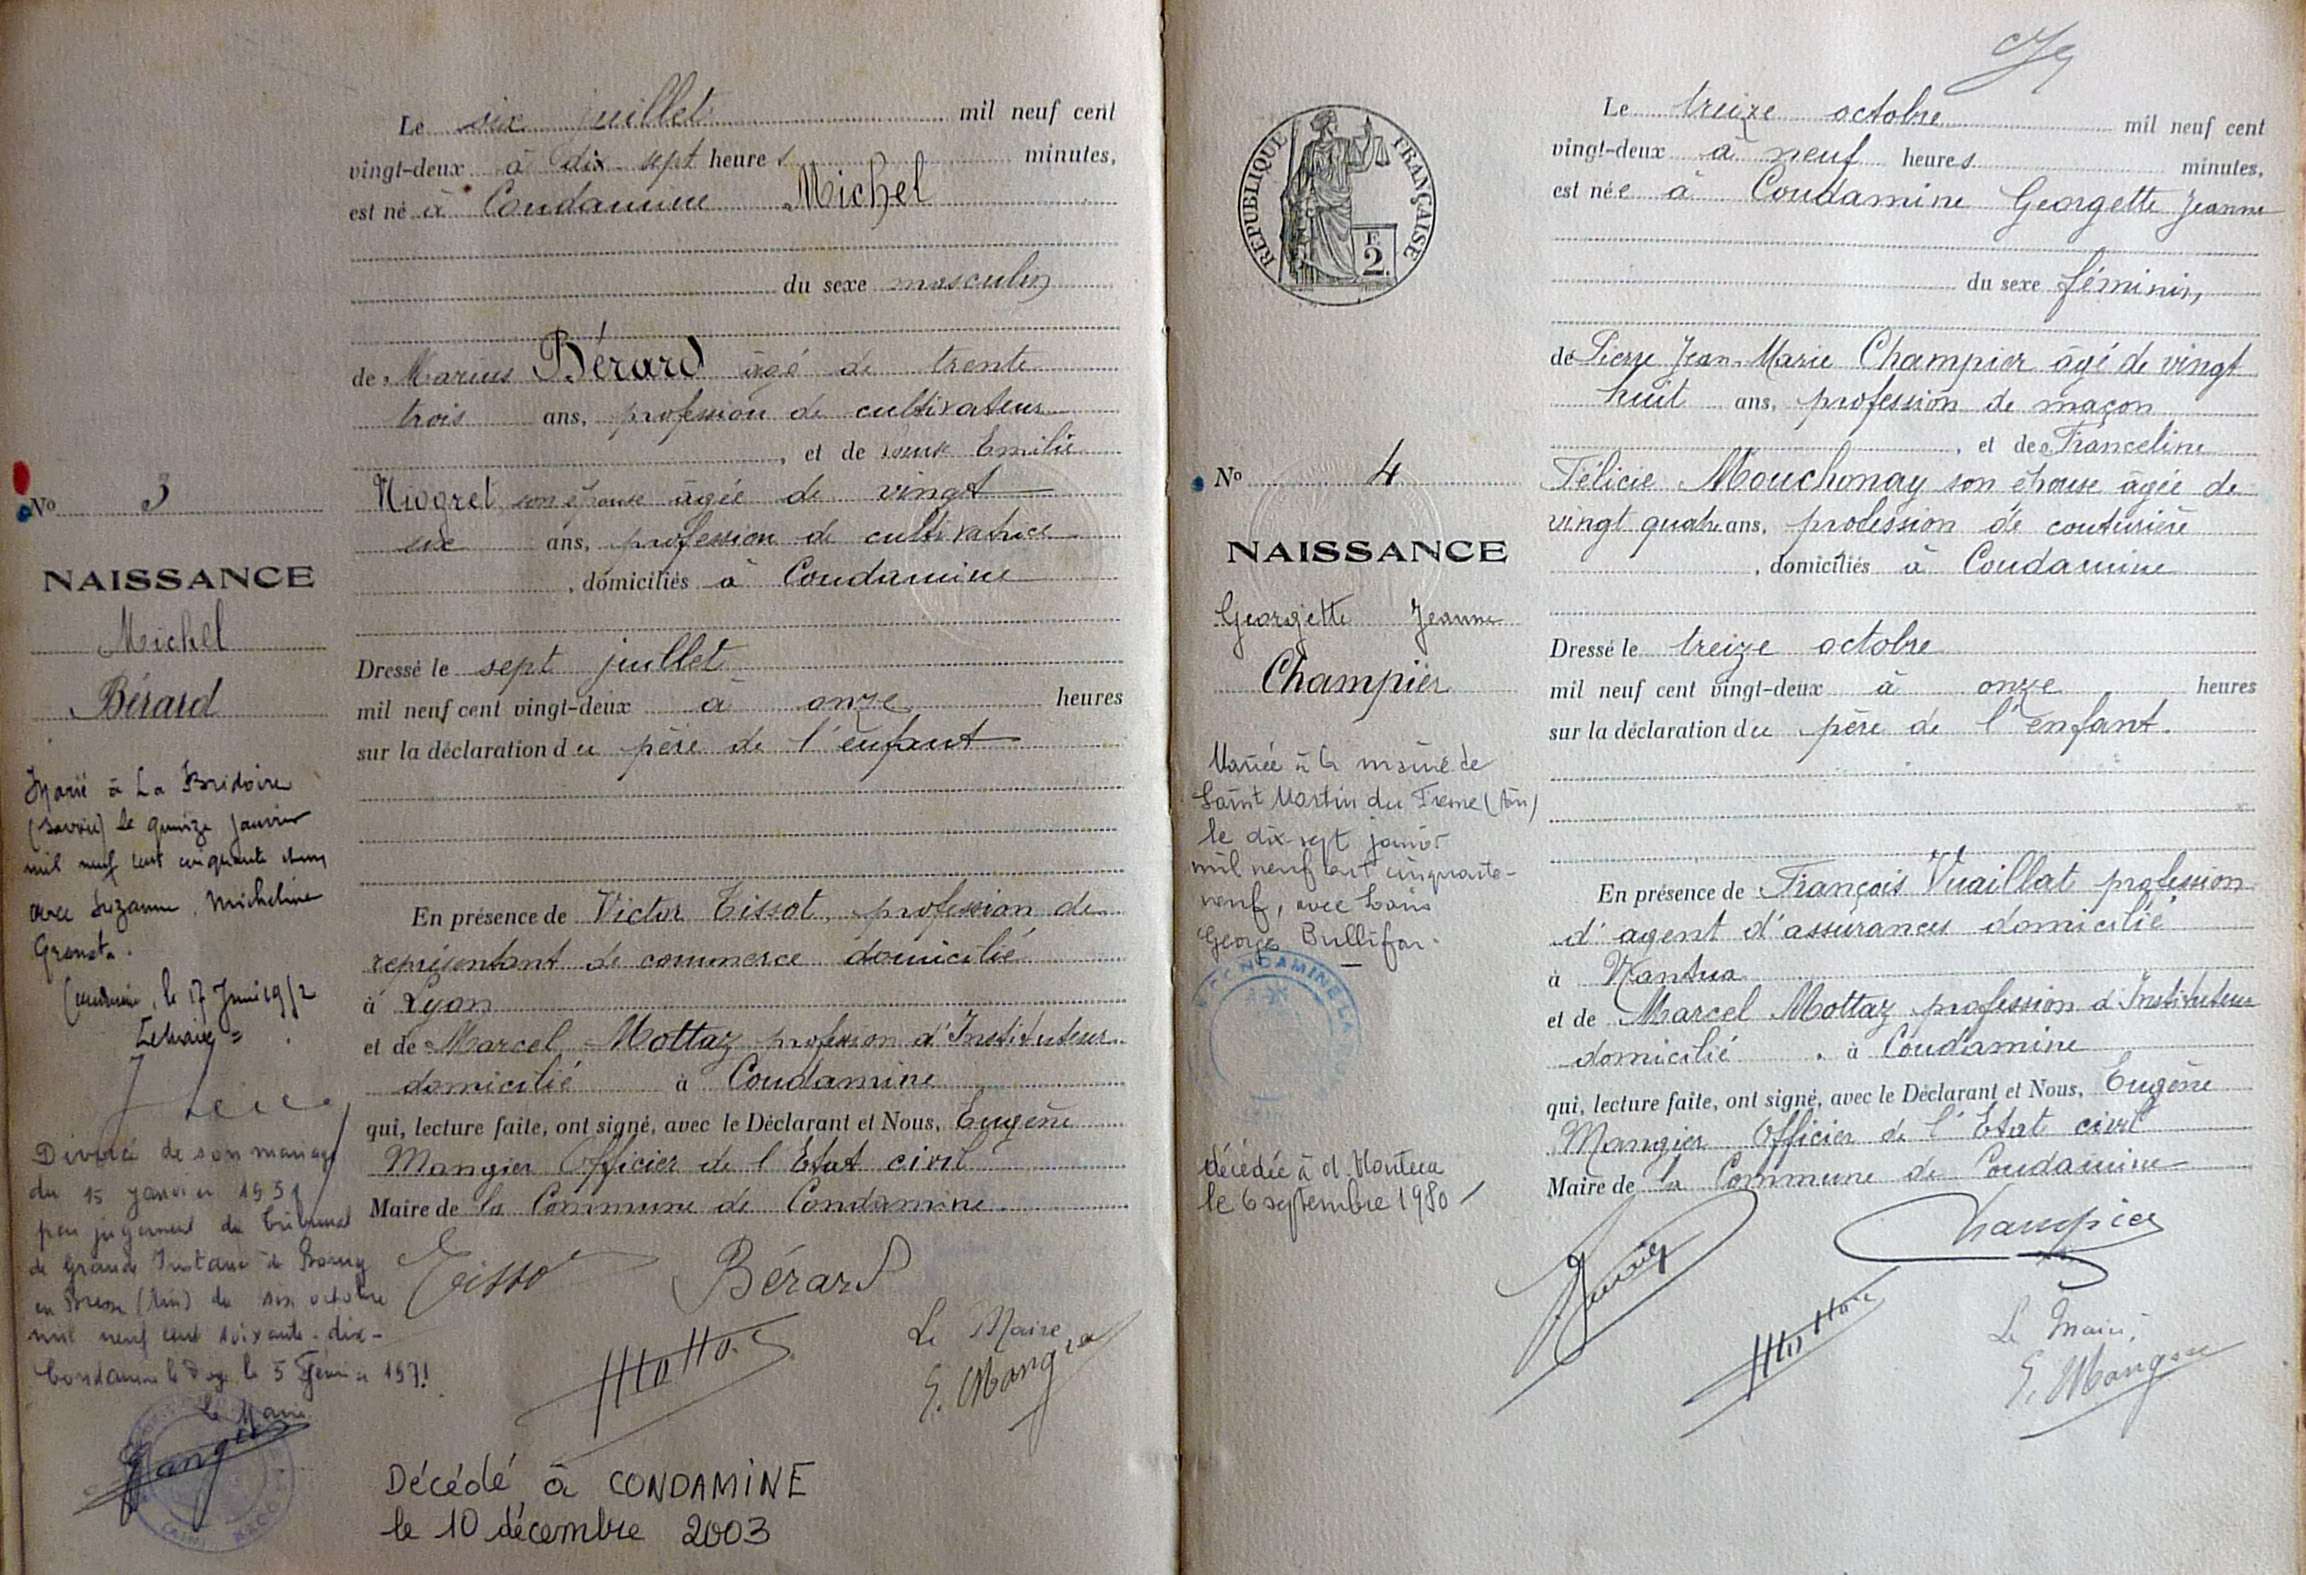 Le six juillet mil neuf cent
vingt-deux à dix sept heures minutes,
est né à Condamine Michel
du sexe masculin
de Marius Bérard âgé de trente
trois ans, profession de cultivateur
, et de Emilie
Niogret son épouse âgée de vingt
six ans, profession de cultivatrice
, domiciliés à Condamine
Dressé le sept juillet
mil neuf cent vingt-deux à onze heures
sur la déclaration du père de l'enfant
En présence de Victor Tissot, profession de
représentant de commerce domicilié
à Lyon
et de Marcel Mottaz profession d'Instituteur
domicilié à Condamine
qui, lecture faite, ont signé, avec le Déclarant et Nous, Eugène
Mangier Officier de l'Etat civil
Maire de la Commune de Condamine
Tissot Bérard
Mottaz
Le Maire
E. Mangier
Décédé à CONDAMINE
le 10 décembre 2003
No 3
NAISSANCE
Michel
Bérard
Marié à La Bridoire
(Savoie) le quinze janvier
mil neuf cent cinquante et un
avec Suzanne Micheline
le 17 Juin 1952
Le Maire
Divorcé de son mariage
du 15 janvier 1951
par jugement du Tribunal
de Grande Instance de Bourg
en Bresse (Ain) du six octobre
mil neuf cent soixante-dix-
le 5 1971
le Maire
Mangier
REPUBLIQUE FRANÇAISE
F.
2.
No 4
NAISSANCE
Georgette Jeanne
Champier
Mariée à la mairie de
Saint Martin du Frene (Ain)
le dix-sept
mil neuf cent cinquante-
neuf, avec Louis
George
CONDAMINE LA
décédée à
le 6 septembre 1980
Le treize octobre mil neuf cent
vingt-deux à neuf heures minutes,
est née à Condamine Georgette Jeanne
du sexe féminin,
de Pierre Jean-Marie Champier âgé de vingt
huit ans, profession de maçon
, et de Franceline
Félicie Mouchonay son épouse âgée de
vingt quatre ans, profession de couturière
, domiciliés à Condamine
Dressé le treize octobre
mil neuf cent vingt-deux à onze heures
sur la déclaration du père de l'enfant.
En présence de François Vuaillat profession
d'agent d'assurances domicilié
à Nantua
et de Marcel Mottaz profession d'Instituteur
domicilié à Condamine
qui, lecture faite, ont signé, avec le Déclarant et Nous, Eugène
Mangier Officier de l'Etat civil
Maire de la Commune de Condamine
Champier
Mottaz
Le Maire,
E. Mangier